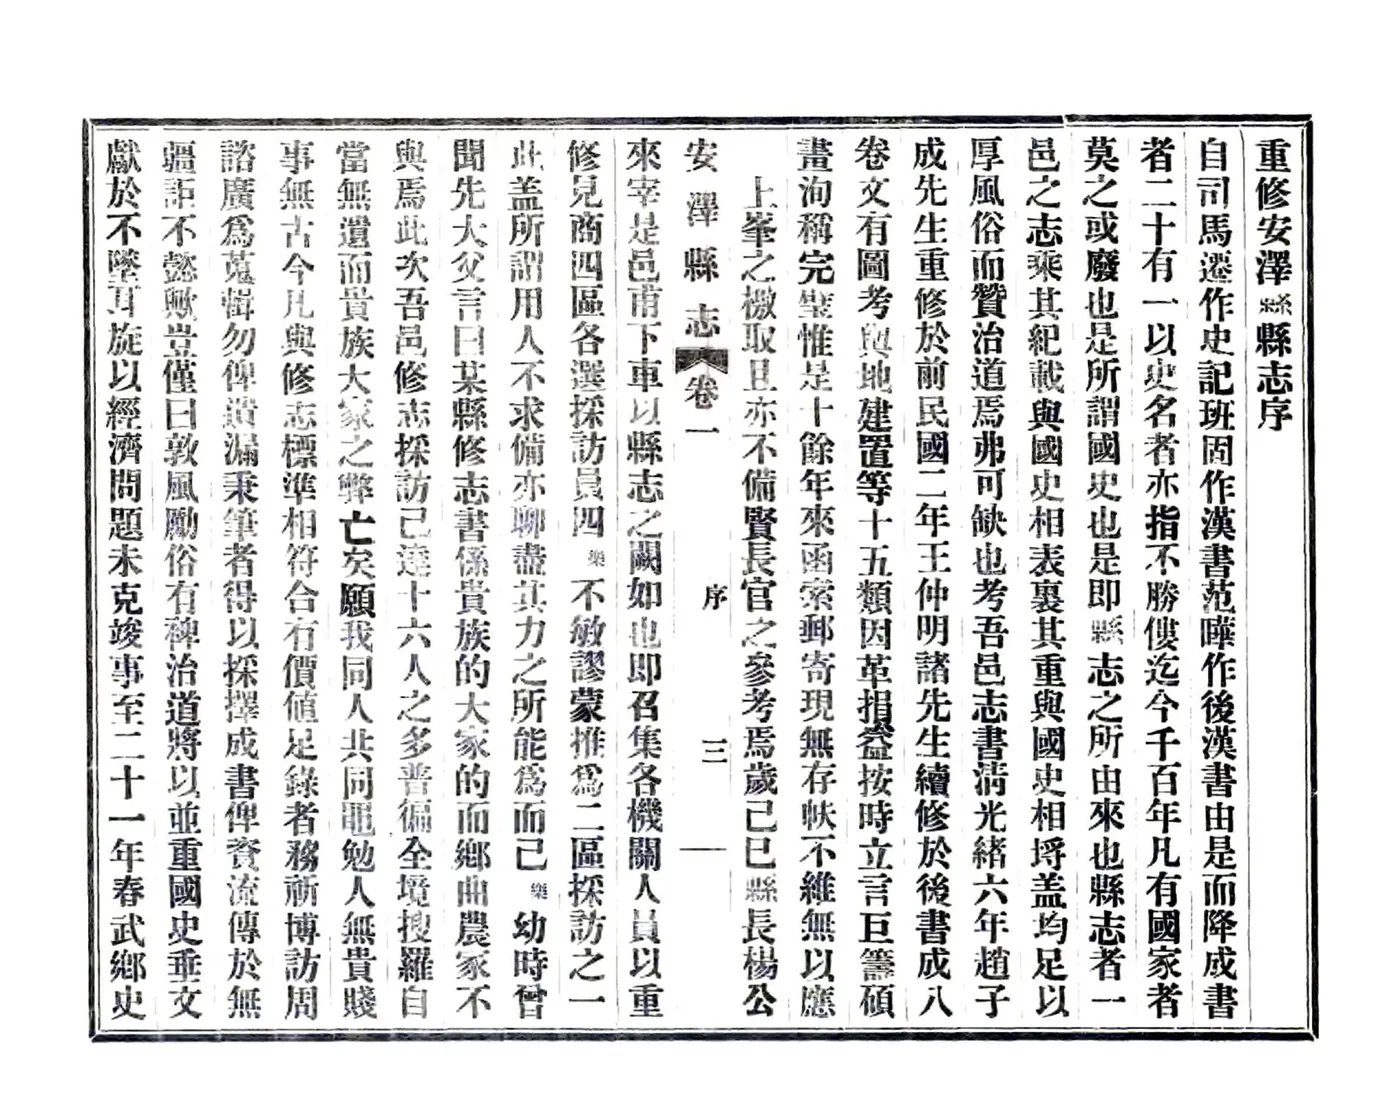 重修安澤縣縣志序
自司馬遷作史記班固作漢書范曄作後漢書由是而降成書
者二十有一以史名者亦指不勝僂迄今千百年凡有國家者
莫之或廢也是所謂國史也是即縣志之所由來也縣志者一
邑之志乘其紀載與國史相表裏其重與國史相埒盖均足以
厚風俗而贊治道焉弗可缺也考吾邑志書清光緒六年趙子
成先生重修於前民國二年王仲明諸先生續修於後書成八
卷文有圖考與地建置等十五類因革損益按時立言巨籌碩
畫洵稱完璧惟是十餘年來函索郵寄現無存帙不維無以應
上峯之檄取且亦不備賢長官之參考焉歲己巳縣長楊公
安澤縣志 卷一 序 三
來宰是邑甫下車以縣志之闕如也即召集各機關人員以重
修見商四區各選採訪員四樂不敏謬蒙推爲二區採訪之一
此盖所謂用人不求備亦聊盡其力之所能爲而已樂幼時曾
聞先大父言曰某縣修志書係貴族的大家的而鄉曲農家不
與焉此次吾邑修志採訪已達十六人之多普徧全境搜羅自
當無遺而貴族大家之弊亡矣願我同人共同黽勉人無貴賤
事無古今凡與修志標準相符合有價值足錄者務祈博訪周
諮廣爲蒐輯勿俾遺漏秉筆者得以採擇成書俾資流傳於無
疆詎不懿歟豈僅曰敦風勵俗有裨治道將以並重國史垂文
獻於不墜耳旋以經濟問題未克竣事至二十一年春武鄉史